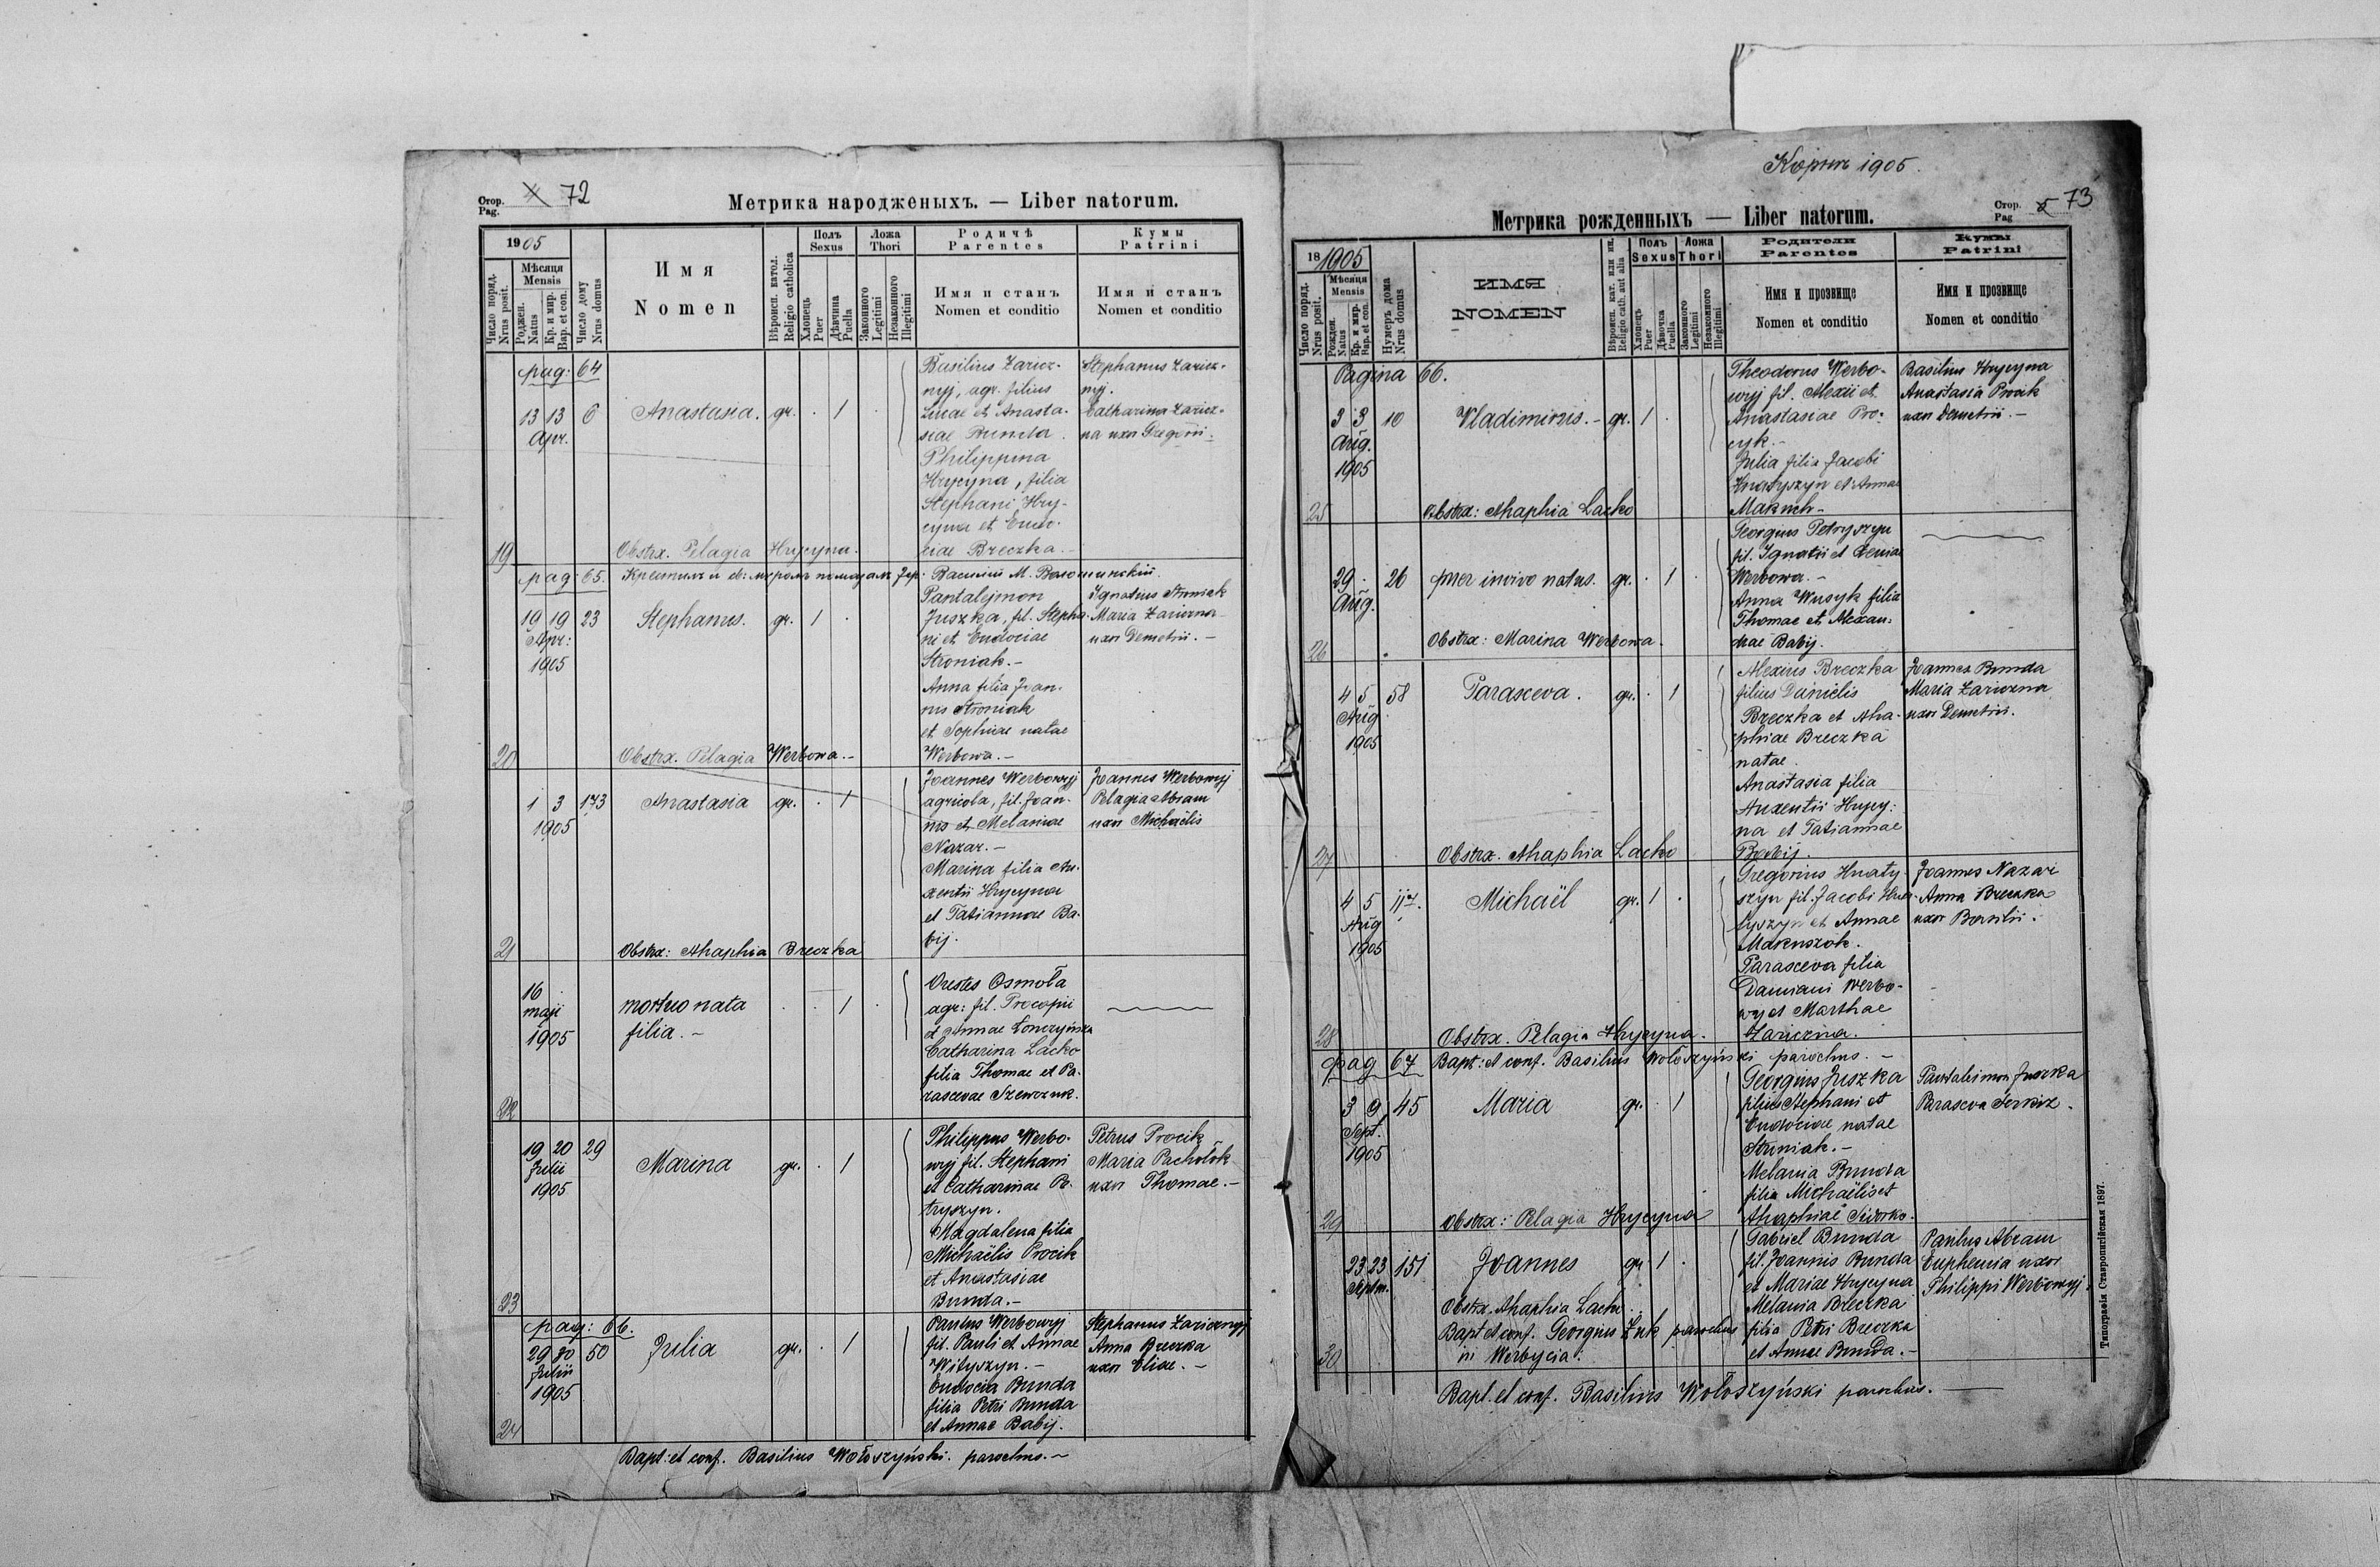 Стор. Pag. 4 72
Метрика народженыхъ. — Liber natorum.
1905
Число поряд. Nrus posit.
Мѣсяця Mensis
Роджен. Natus
Кр. и мир. Bap. et con.
Число дому Nrus domus
Имя
Nomen
Вѣроисп. катол. Religio catholica
Полъ Sexus
Хлопець Puer
Дѣвчина Puella
Ложа Thori
Законного Legitimi
Незаконного Illegitimi
Родичѣ Parentes
Имя и станъ
Nomen et conditio
Кумы Patrini
Имя и станъ
Nomen et conditio
pag: 64
13 13 6 Anastasia. gr. . 1 .
Apr.
Basilius Zaricz-
nyj, agr. filius
Lucae et Anasta-
siae Bunda.
Philippina
Hrycyna, filia
Stephani Hry-
cyna et Eudo-
ciae Breczka.
Stephanus Zaricz-
nyj.
Catharina Zaricz-
na uxor Gregorii.
19 Obstx. Pelagia Hrycyna.
pag: 65. Крестилъ и св: мѵромъ помазалъ Василій М. Волошинскій.
19 19 23 Stephanus. gr. 1 .
Apr:
1905
Pantalejmon
Juszka, fil. Stepha-
ni et Eudociae
Stroniak.-
Anna filia Joan-
nis Stroniak
et Sophiae natae
Werbowa.-
Ignatius Stroniak
Maria Zariczna
uxor Demetrii.-
20 Obstx. Pelagia Werbowa.-
1 3 173 Anastasia gr. . 1
1905
Joannes Werbowyj
agricola, fil. Joan-
nis et Melaniae
Nazar.-
Marina filia Au-
xentii Hrycyna
et Tatiannae Ba-
bij.
Joannes Werbowyj
Pelagia Abram
uxor Michaelis
21 Obstx: Ahaphia Breczka
16
maji
1905
mortuo nata
filia.-
. . 1 .
Orestes Osmoła
agr: fil. Procopii
et Annae Łonczyńska
Catharina Lacko
filia Thomae et Pa-
rascevae Szewczuk.
22
19 20 29 Marina gr. . 1
Julii
1905
Philippus Werbo-
wyj fil. Stephani
et Catharinae Pe-
tryszyn.
Magdalena filia
Michaëlis Procik
et Anastasiae
Bunda.-
Petrus Procik
Maria Pachołok
uxor Thomae.-
23
pag: 66.
29 30 50 Julia gr. . 1
Julii
1905
Paulus Werbowyj
fil. Pauli et Annae
Wityszyn.-
Eudocia Bunda
filia Petri Bunda
et Annae Babij.
Stephanus Zariznyj
Anna Breczka
uxor Eliae.-
24
Bapt: et conf. Basilius Wołoszyński. parochus.-
1905.
Стор. Pag 5 73
Метрика рожденныхъ — Liber natorum.
18 1905
Число поряд. Nrus posit.
Мѣсяця Mensis
Рожден. Natus
Кр. и мир. Bap. et con.
Нумеръ дома Nrus domus
ИМЯ
NOMEN
Вѣроисп. кат. или ин. Religio cath. aut alia
Полъ Sexus
Хлопець Puer
Дѣвочка Puella
Ложа Thori
Законного Legitimi
Незаконного Illegitimi
Родители Parentes
Имя и прозвище
Nomen et conditio
Кумы Patrini
Имя и прозвище
Nomen et conditio
Pagina 66.
3 3 10 Vladimirus.- gr. 1 .
Aug.
1905
Theodorus Werbo-
wyj fil. Alexii et
Anastasiae Pro-
cyk.-
Julia filia Jacobi
Hnatyszyn et Annae
Makuch-
Basilius Hrycyna
Anastasia Procik
uxor Demetrii.-
25 Obstx: Ahaphia Lacko
29 . 26 puer invivo natus. gr. . 1 .
Aug.
Georgius Petryszyn
fil. Ignatii et Xeniae
Werbowa.-
Anna Wusyk filia
Thomae et Alexan-
drae Babij.
26 Obstx: Marina Werbowa.
4 5 58 Parasceva. gr. . 1
Aug.
1905
Alexius Breczka
filius Danielis
Breczka et Aha-
phiae Breczka
natae.
Anastasia filia
Auxentii Hrycy-
na et Tatiannae
Babij.
Joannes Bunda
Maria Zariczna
uxor Demetrii.
27 Obstx. Ahaphia Lacko
4 5 117. Michaël gr. 1 .
Aug
1905
Gregorius Hnaty-
szyn fil. Jacobi Hna-
tyszyn et Annae
Makuszok.
Parasceva filia
Damiani Werbo-
wyj et Marthae
Zariczna.
Joannes Nazar
Anna Breczka
uxor Basilii.
28 Obstx. Pelagia Hrycyna.
pag 67 Bapt: et conf. Basilius Wołoszyński parochus.-
3 9 45 Maria gr. . 1
Sept.
1905
Georgius Juszka
filius Stephani et
Eudociae natae
Stroniak.-
Melania Bunda
filia Michaëlis et
Ahaphiae Siworko.
Pantaleimon Juszka
Parasceva
29 Obstx: Pelagia Hrycyna
23 23 151 Joannes gr 1 .
Septm.
Gabriel Bunda
fil. Joannis Bunda
et Mariae Hrycyna
Melania Breczka
filia Petri Breczka
et Annae Bunda.-
Paulus Abram
Euphemia uxor
Philippi Werbowyj.
Obstx. Ahaphia Lacko.
Bapt et conf. Georgius Żuk parochus
30 in Werbycia.
Bapt. et conf. Basilius Wołoszyński parochus.
Типографія Ставропигійская 1897.